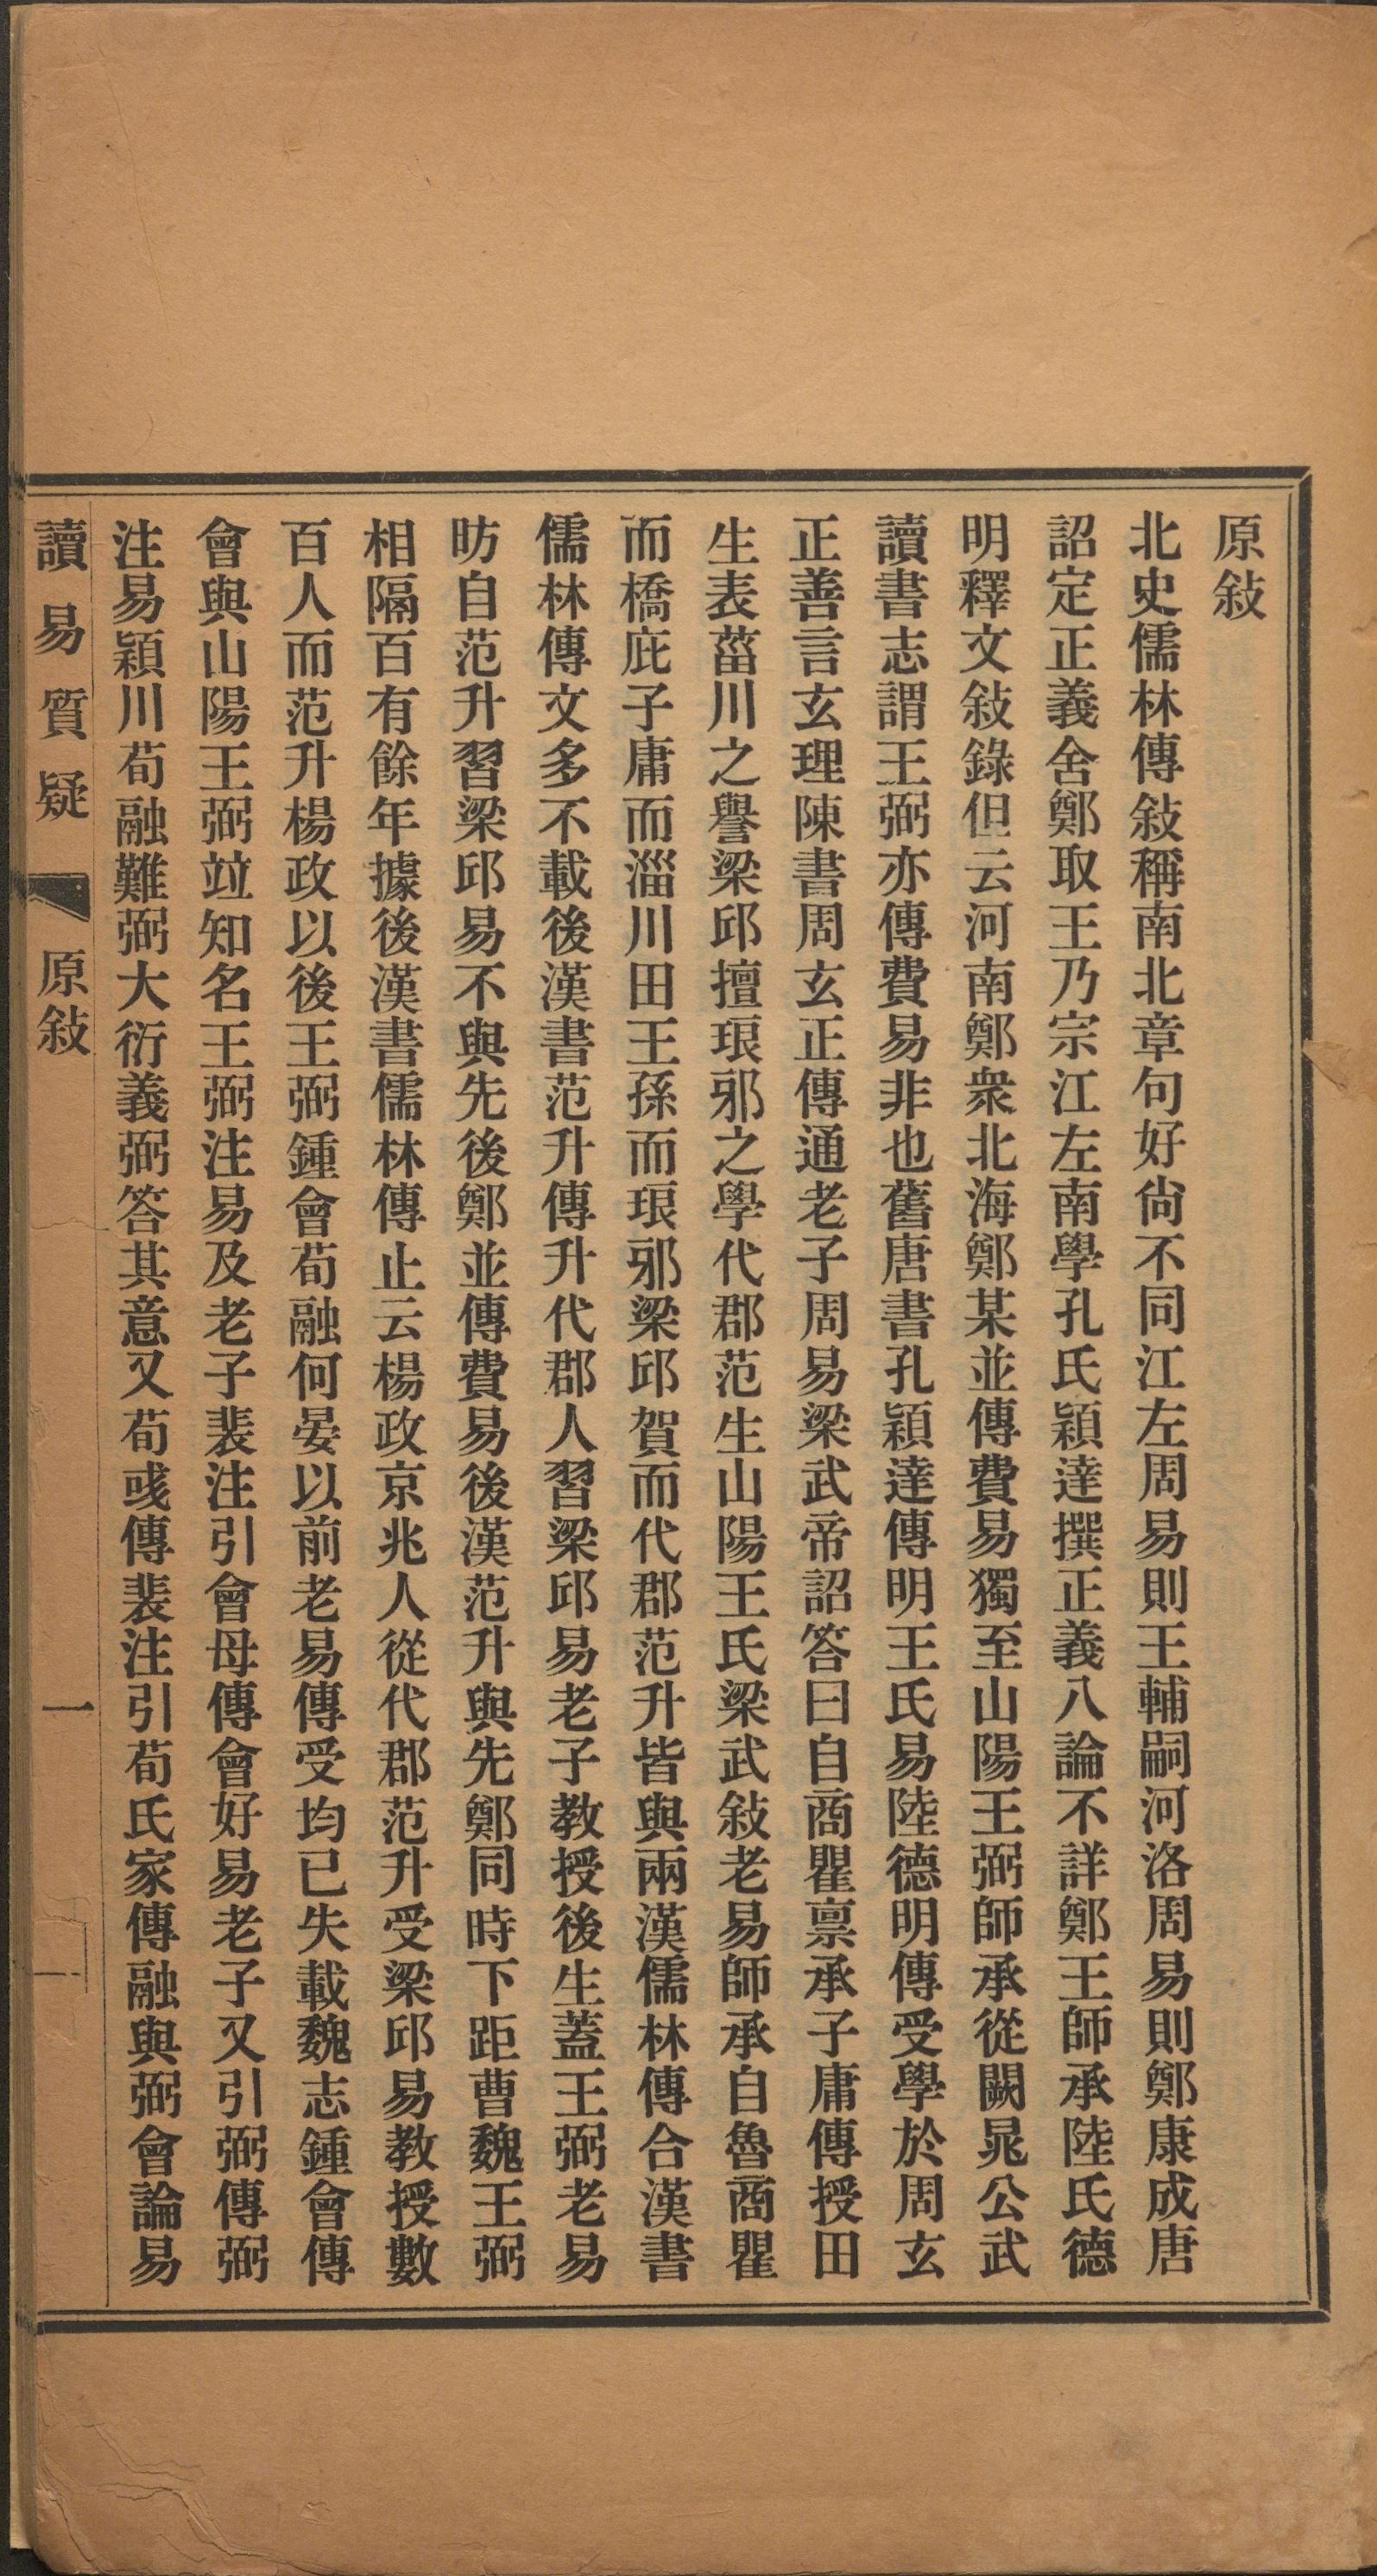 原敍
北史儒林傳敍稱南北章句好尙不同江左周易則王輔嗣河洛周易則鄭康成唐
詔定正義舍鄭取王乃宗江左南學孔氏穎達撰正義八論不詳鄭王師承陸氏德
明釋文敍錄但云河南鄭衆北海鄭某並傳費易獨至山陽王弼師承從闕晁公武
讀書志謂王弼亦傳費易非也舊唐書孔穎達傳明王氏易陸德明傳受學於周玄
正善言玄理陳書周玄正傳通老子周易梁武帝詔答曰自商瞿稟承子庸傳授田
生表菑川之譽梁邱擅琅邪之學代郡范生山陽王氏梁武敍老易師承自魯商瞿
而橋庇子庸而淄川田王孫而琅邪梁邱賀而代郡范升皆與兩漢儒林傳合漢書
儒林傳文多不載後漢書范升傳升代郡人習梁邱易老子教授後生蓋王弼老易
昉自范升習梁邱易不與先後鄭並傳費易後漢范升與先鄭同時下距曹魏王弼
相隔百有餘年據後漢書儒林傳止云楊政京兆人從代郡范升受梁邱易教授數
百人而范升楊政以後王弼鍾會荀融何晏以前老易傳受均已失載魏志鍾會傳
會與山陽王弼竝知名王弼注易及老子裴注引會母傳會好易老子又引弼傳弼
注易穎川荀融難弼大衍義弼答其意又荀彧傳裴注引荀氏家傳融與弼會論易
讀易質疑
原敍
一